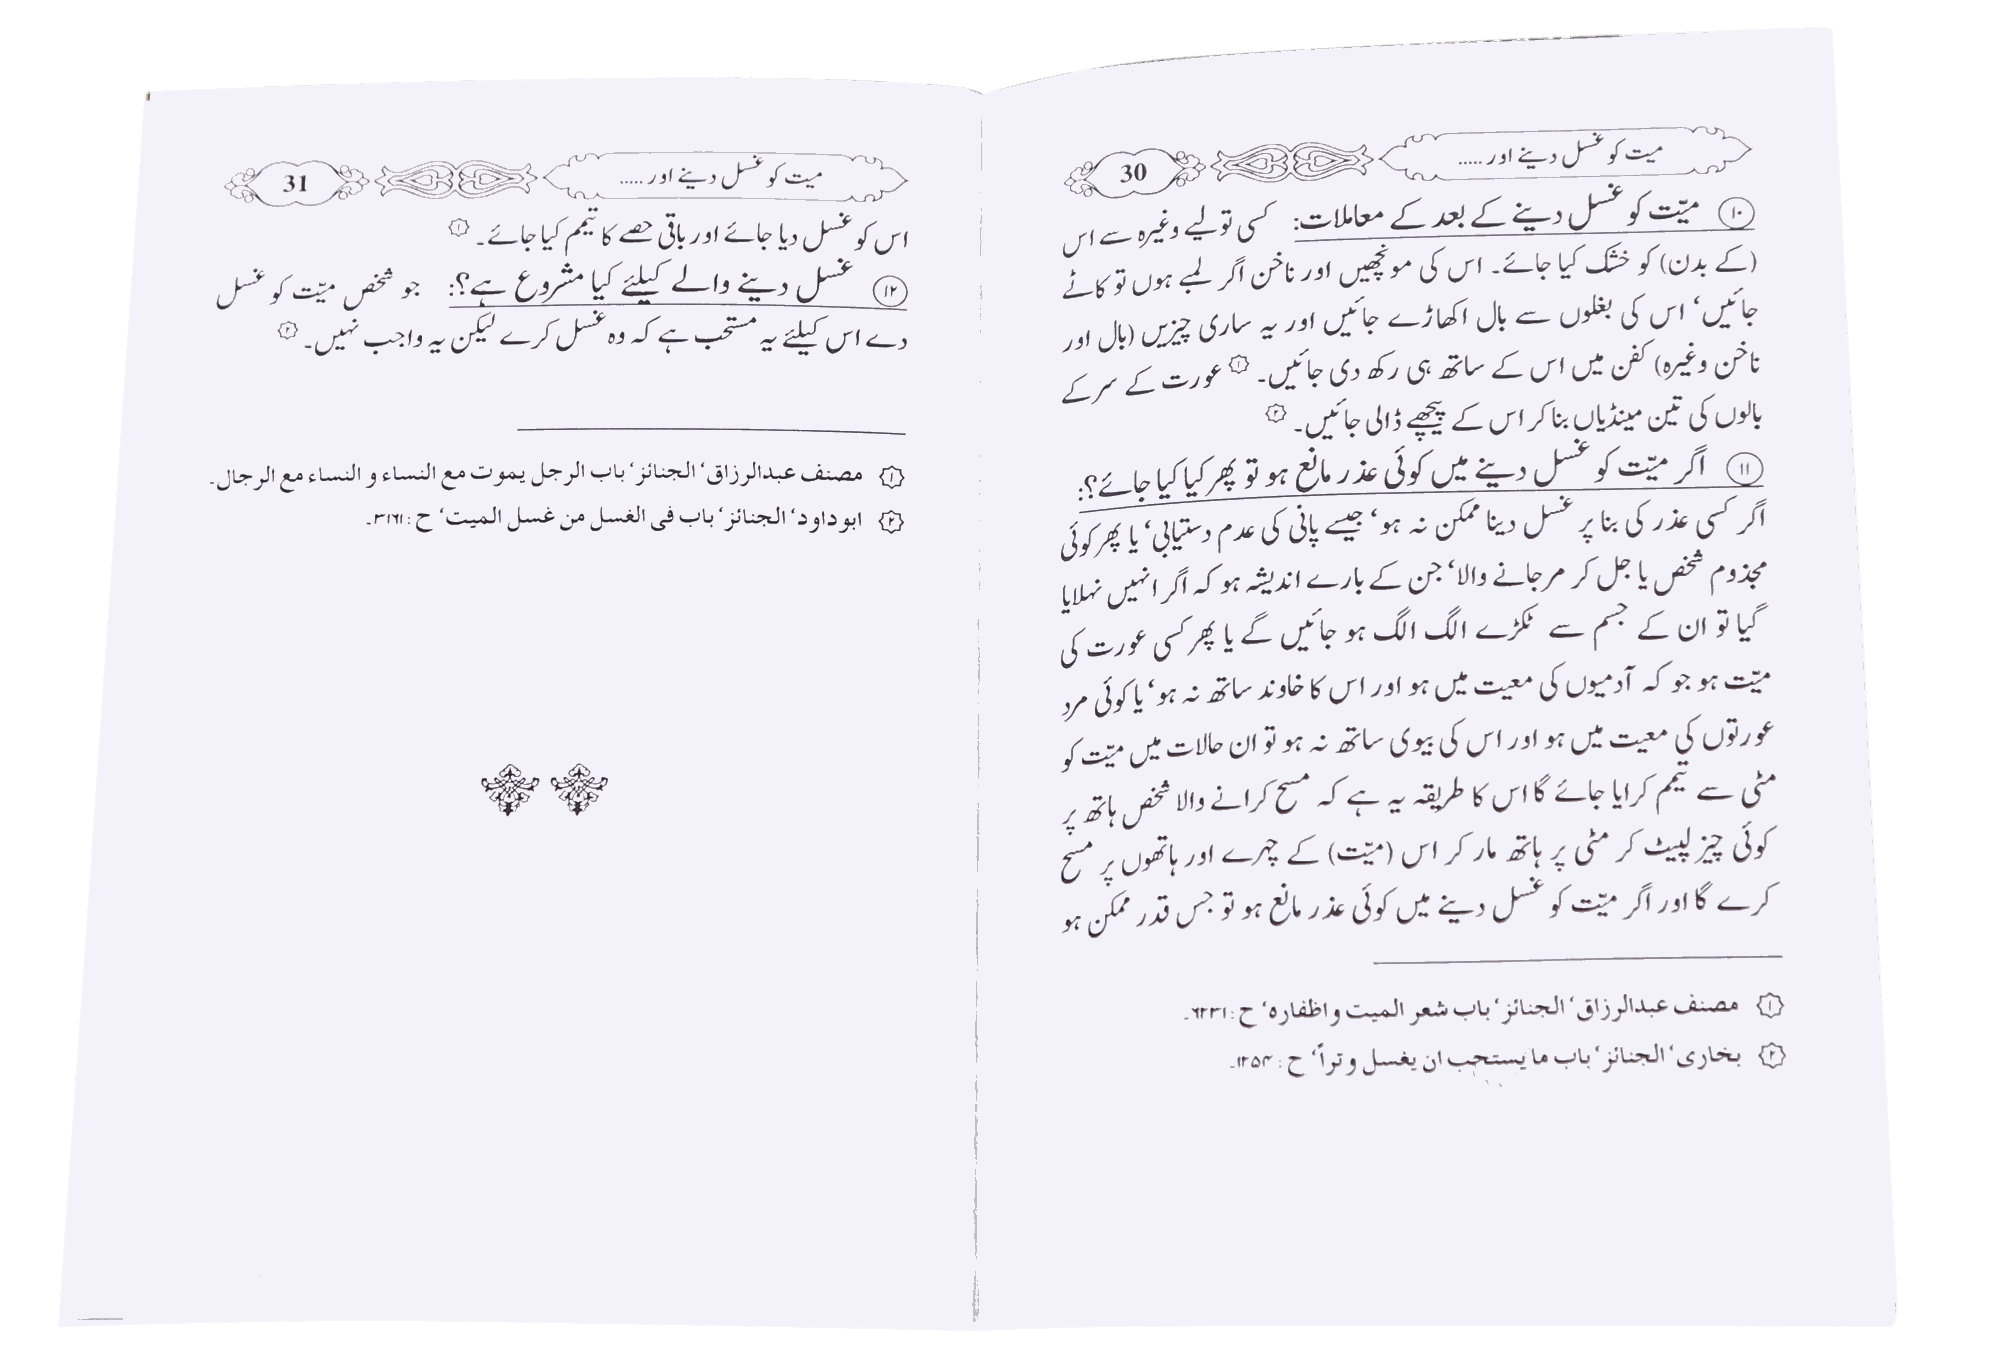 میت کو غسل دینے اور ..... 30
۱۰ میّت کو غسل دینے کے بعد کے معاملات: کسی تولیے وغیرہ سے اس
(کے بدن) کو خشک کیا جائے۔ اس کی مونچھیں اور ناخن اگر لمبے ہوں تو کاٹے
جائیں‘ اس کی بغلوں سے بال اکھاڑے جائیں اور یہ ساری چیزیں (بال اور
ناخن وغیرہ) کفن میں اس کے ساتھ ہی رکھ دی جائیں۔ ۱ عورت کے سر کے
بالوں کی تین مینڈیاں بنا کر اس کے پیچھے ڈالی جائیں۔ ۲
۱۱ اگر میّت کو غسل دینے میں کوئی عذر مانع ہو تو پھر کیا کیا جائے؟:
اگر کسی عذر کی بنا پر غسل دینا ممکن نہ ہو‘ جیسے پانی کی عدم دستیابی‘ یا پھر کوئی
مجذوم شخص یا جل کر مر جانے والا‘ جن کے بارے اندیشہ ہو کہ اگر انہیں نہلایا
گیا تو ان کے جسم سے ٹکڑے الگ الگ ہو جائیں گے یا پھر کسی عورت کی
میّت ہو جو کہ آدمیوں کی معیت میں ہو اور اس کا خاوند ساتھ نہ ہو‘ یا کوئی مرد
عورتوں کی معیت میں ہو اور اس کی بیوی ساتھ نہ ہو تو ان حالات میں میّت کو
مٹی سے تیمم کرایا جائے گا اس کا طریقہ یہ ہے کہ مسح کرانے والا شخص ہاتھ پر
کوئی چیز لپیٹ کر مٹی پر ہاتھ مار کر اس (میّت) کے چہرے اور ہاتھوں پر مسح
کرے گا اور اگر میّت کو غسل دینے میں کوئی عذر مانع ہو تو جس قدر ممکن ہو
۱ مصنف عبدالرزاق‘ الجنائز‘ باب شعر المیت و اظفارہ‘ ح : ۶۲۳۱۔
۲ بخاری‘ الجنائز‘ باب ما یستحب ان یغسل وتراً‘ ح : ۱۲۵۴۔
میت کو غسل دینے اور ..... 31
اس کو غسل دیا جائے اور باقی حصے کا تیمم کیا جائے۔ ۱
۱۲ غسل دینے والے کیلئے کیا مشروع ہے؟: جو شخص میّت کو غسل
دے اس کیلئے یہ مستحب ہے کہ وہ غسل کرے لیکن یہ واجب نہیں۔ ۲
۱ مصنف عبدالرزاق‘ الجنائز‘ باب الرجل یموت مع النساء و النساء مع الرجال۔
۲ ابوداود‘ الجنائز‘ باب فی الغسل من غسل المیت‘ ح : ۳۱۶۱۔